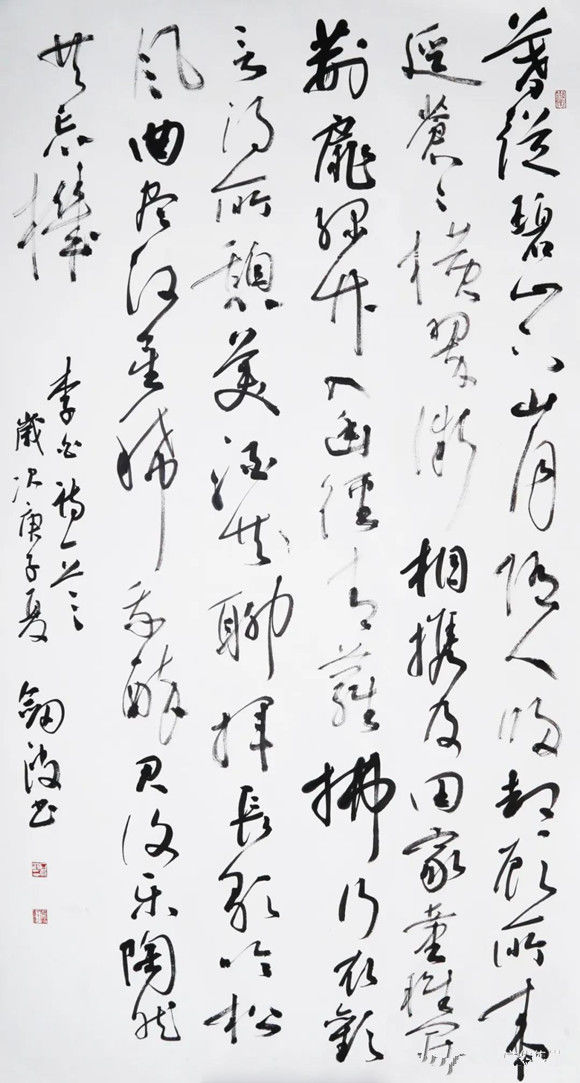 暮從碧山下山月隨人歸却顧所来
逕蒼〻橫翠微相攜及田家童稚開
荊扉綠竹入幽徑青蘿拂行衣歡
言得所憩美酒共聊揮長歌吟松
風曲尽河星稀我醉君復乐陶然
共忘機
李白詩一首
歲次庚子夏 劍波书